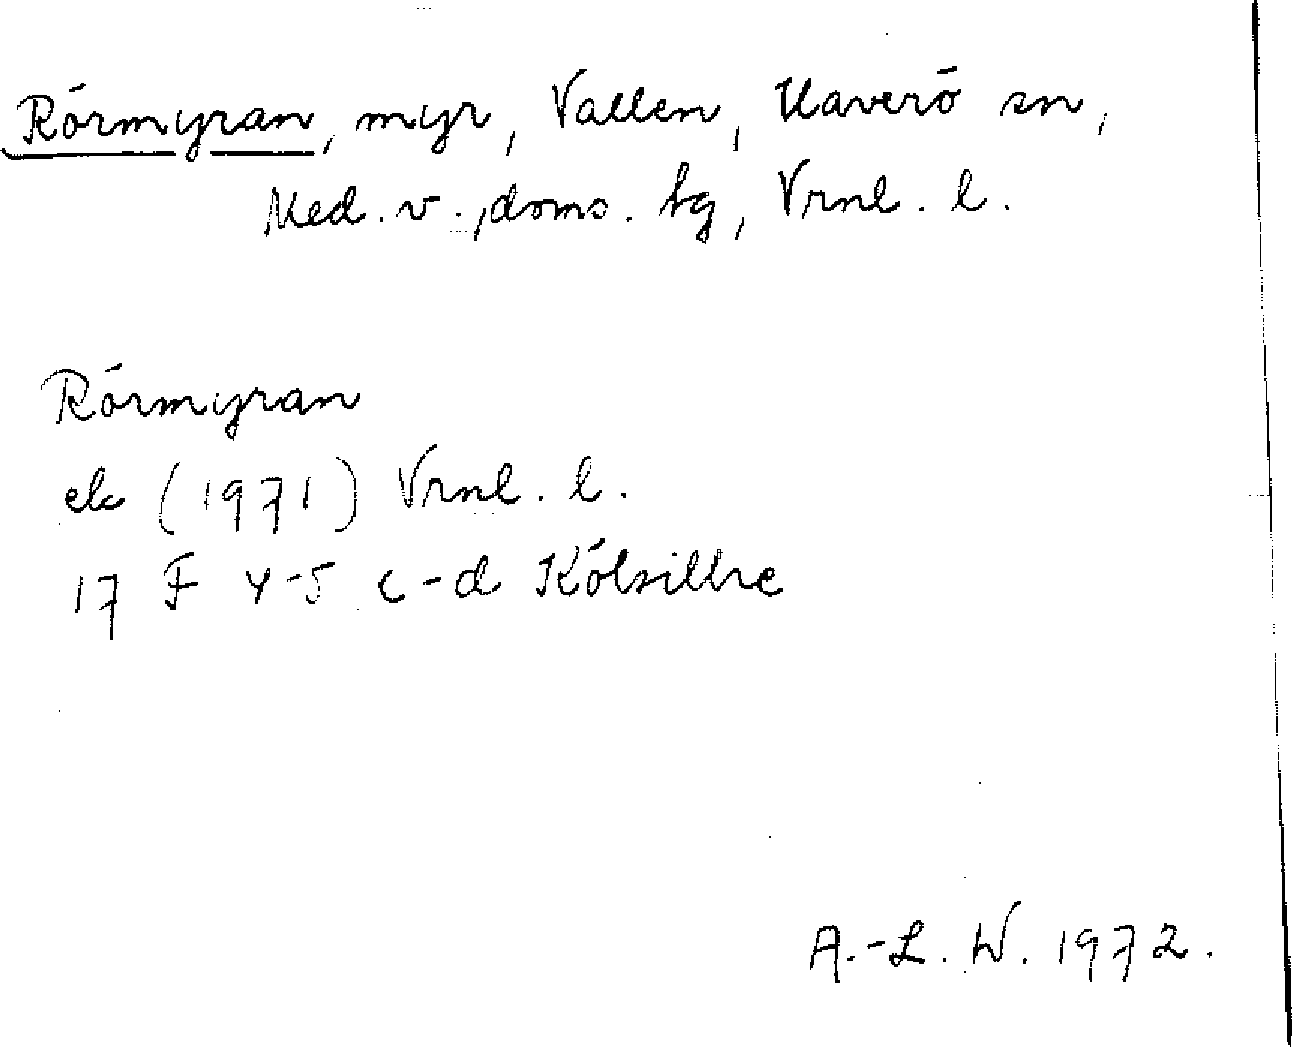 Rörmyran, myr, Vallen, Haverö sn,
Med. v., doms. hg, Vrnl. l.
Rörmyran
ek (1971) Vrnl. l.
17 F 4-5 c-d Kölsillre
A.-L. W. 1972.